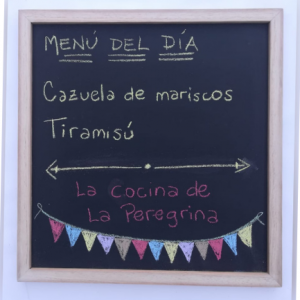 MENÚ DEL DÍA
Cazuela de mariscos
Tiramisú
La cocina de
La Peregrina